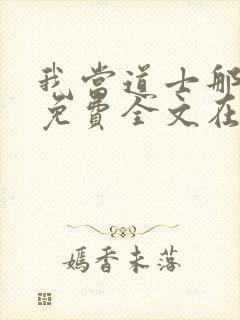 我当道士那
免费全文在
嫣香未落